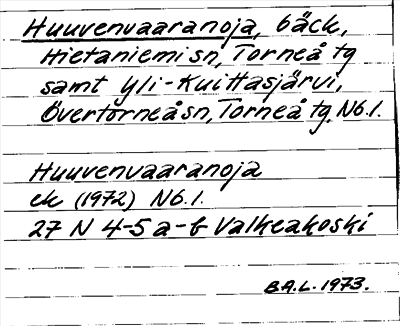 Huuvenvaaranoja, bäck,
Hietaniemi sn, Torneå tg
samt Yli-Kuittasjärvi,
Övertorneå sn, Torneå tg, Nb.l.
Huuvenvaaranoja
ek (1972) Nb.l.
27 N 4-5 a-b Valkeakoski
B.A.L. 1973.